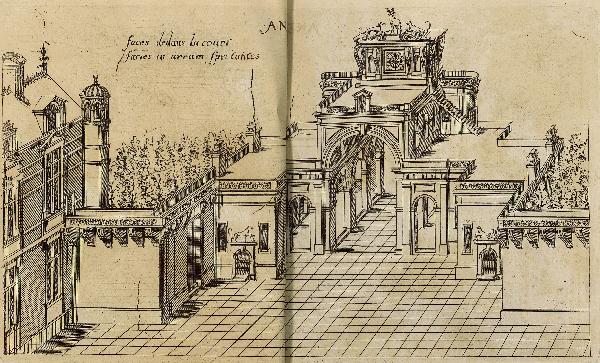 AN
faces dedans la court
facies in aream spectantes